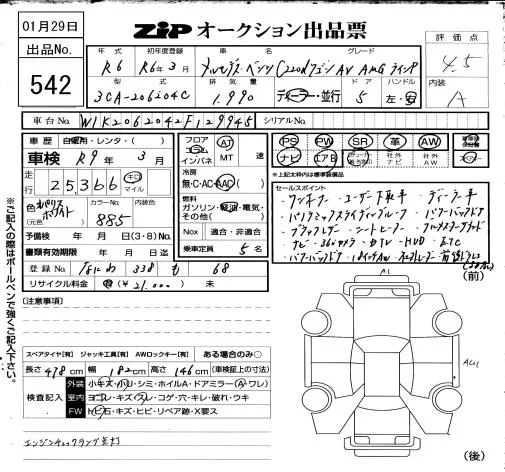 01月29日
ZIP オークション出品票
出品No.
542
評価点
4.5
内装
A
年式 初年度登録 車名 グレード
R6 R6年3月 メルセデス・ベンツ C220dワゴン AV AMGライン
型式 排気量 ドア ハンドル
3CA-206204C 1,990 ディーラー・並行 5 左・右
車台No. W1K2062042F129945 シリアルNo.
車歴 自家用・レンタ・( )
車検 R9年3月
走行 25366 キロ マイル
色 オパリスホワイト (元色) カラーNo. 885
予備検 年 月 日(3・8)No.
書類有効期限 年 月 日迄
登録No. なにわ 338 も 68
リサイクル料金 有(¥21,000) 未
フロア コラム インパネ AT MT 速
冷房 無・C・AC・AAC
燃料 ガソリン・軽油・電気・その他( )
Nox 適合・非適合
乗車定員 5名
PS PW SR 革 AW
ナビ エアB 社外ナビ 社外AW
★上記枠内は標準装備品
セールスポイント
ワンオーナー ユーザー下取車 ディーラー車
パノラミックスライディングルーフ パワーバックドア
ナビ 360カメラ 地TV HUD ETC
(注意事項)
スペアタイヤ[有] ジャッキ工具[有] AWロックキー[有] ある場合のみ○
長さ 478cm 幅 182cm 高さ 146cm (車検証上の寸法)
検査記入
外装 小キズ・凹・シミ・ホイルA・ドアミラー(A・ワレ)
室内 ヨゴレ・キズ・スレ・コゲ・穴・キレ・破れ・ウキ
FW トビ石・キズ・ヒビ・リペア跡・X要ス
エンジンチェックランプ点灯
(前)
(後)
※ご記入の際はボールペンで強くご記入下さい。